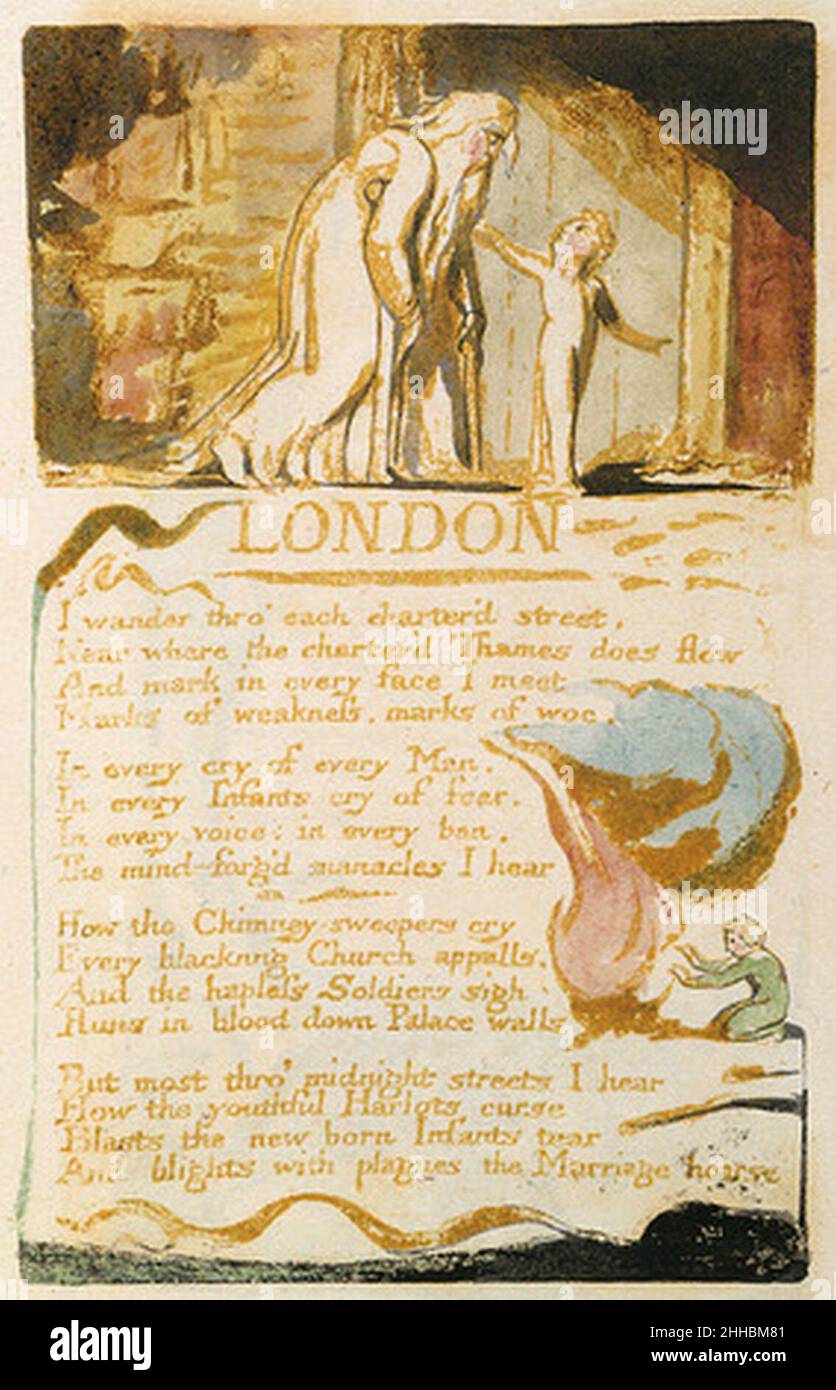 LONDON
I wander thro' each charter'd street,
Near where the charter'd Thames does flow
And mark in every face I meet
Marks of weakness, marks of woe.
In every cry of every Man,
In every Infants cry of fear,
In every voice: in every ban,
The mind-forg'd manacles I hear
How the Chimney-sweepers cry
Every blackning Church appalls,
And the hapless Soldiers sigh
Runs in blood down Palace walls
But most thro' midnight streets I hear
How the youthful Harlots curse
Blasts the new born Infants tear
And blights with plagues the Marriage hearse
alamy
Image ID: 2HHBM81
www.alamy.com